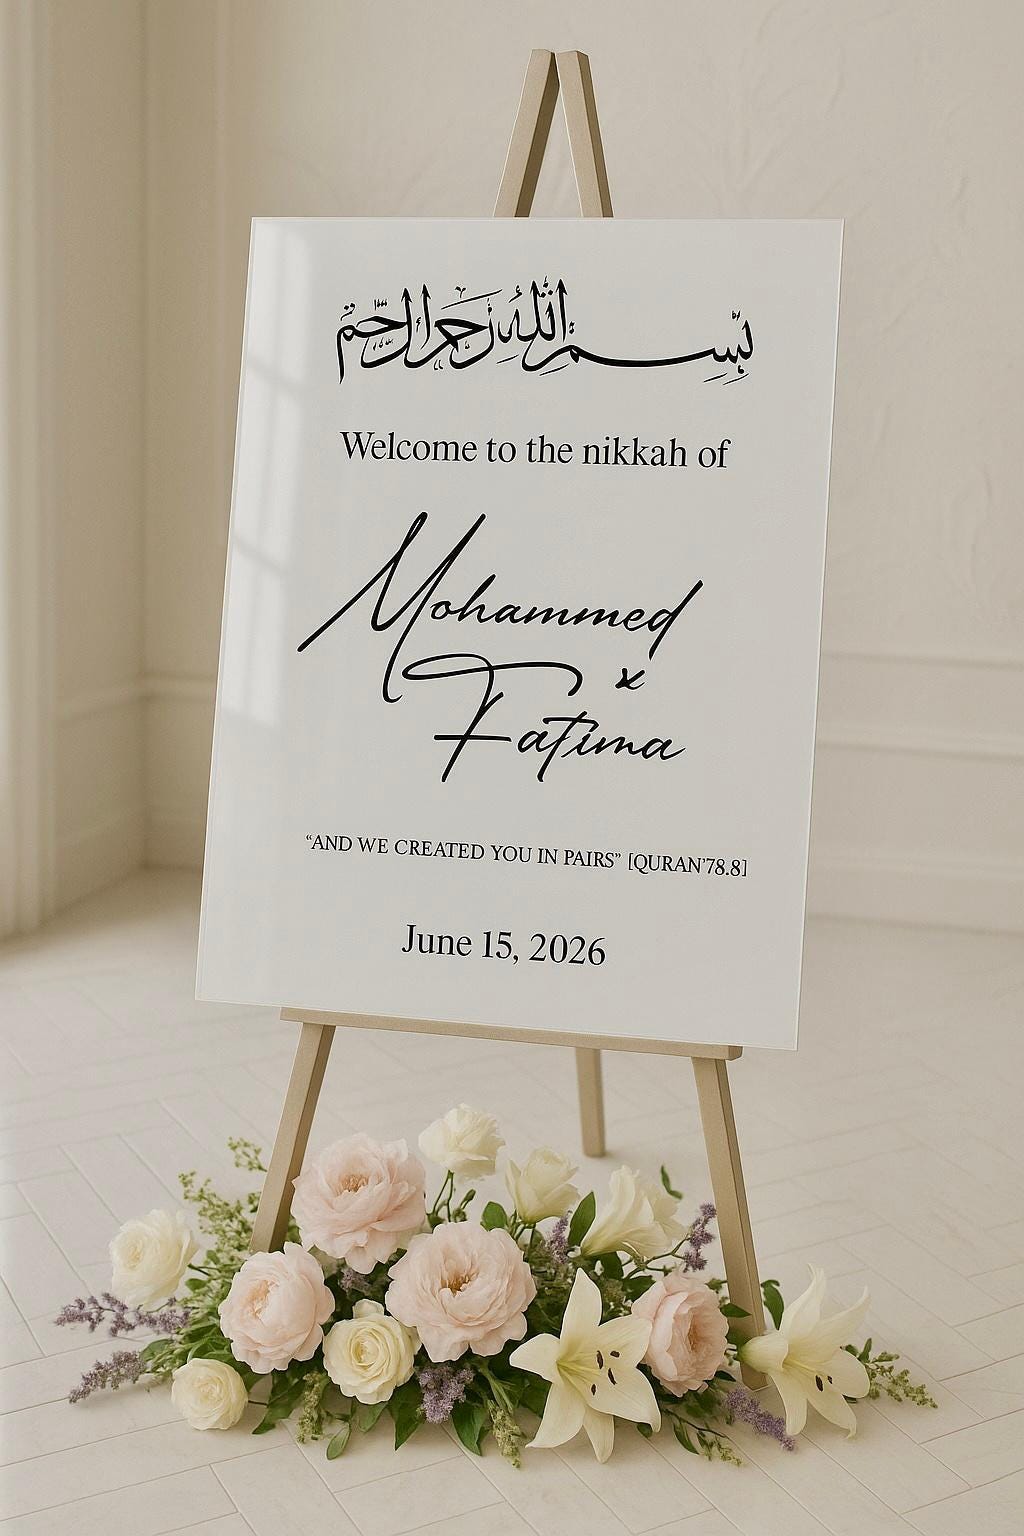 بسم الله الرحمن الرحيم
Welcome to the nikkah of
Mohammed
x
Fatima
“AND WE CREATED YOU IN PAIRS” [QURAN’78.8]
June 15, 2026